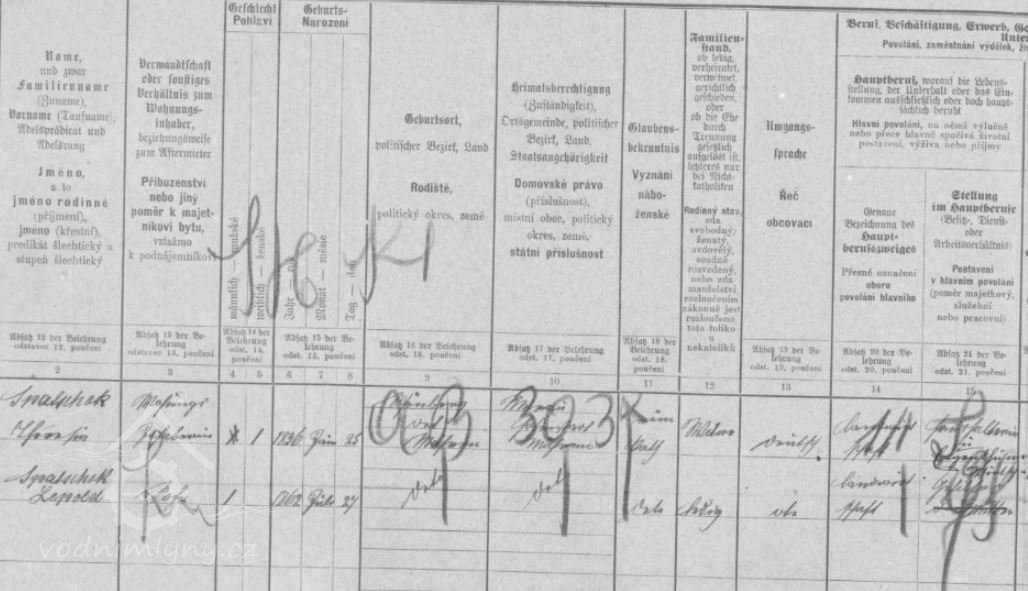 Name,
und zwar
Familienname
(Zuname),
Vorname (Taufname),
Adelsprädicat und
Adelsrang
Jméno,
a to
jméno rodinné
(příjmení),
jméno (křestní),
predikát šlechtický a
stupeň šlechtický
Absatz 12 der Belehrung
odstavec 12. poučení
2
Verwandtschaft
oder sonstiges
Verhältnis zum
Wohnungs-
inhaber,
beziehungsweise
zum Aftermieter
Příbuzenství
nebo jiný
poměr k majet-
níkovi bytu,
vztažmo
k podnájemníkovi
Absatz 13 der Be-
lehrung
odstavec 13. poučení
3
Geschlecht
Pohlaví
männlich — mužské
weiblich — ženské
Absatz 14 der
Belehrung
odst. 14.
poučení
4 5
Geburts-
Narození
Jahr —
Monat — měsíc
Tag — den
Absatz 15 der Be-
lehrung
odst. 15. poučení
6 7 8
Geburtsort,
politischer Bezirk, Land
Rodiště,
politický okres, země
Absatz 16 der Belehrung
odst. 16. poučení
9
Heimatsberechtigung
(Zuständigkeit),
Ortsgemeinde, politischer
Bezirk, Land,
Staatsangehörigkeit
Domovské právo
(příslušnost),
místní obec, politický
okres, země,
státní příslušnost
Absatz 17 der Belehrung
odst. 17. poučení
10
Glaubens-
bekenntnis
Vyznání
nábo-
ženské
Absatz 18 der
Belehrung
odst. 18.
poučení
11
Familien-
stand,
ob ledig,
verheiratet,
verwitwet,
gerichtlich
geschieden,
oder
ob die Ehe
durch
Trennung
gesetzlich
aufgelöst ist,
letzteres nur
bei Nicht-
katholiken
Rodinný stav,
zda
svobodný,
ženatý,
ovdovělý,
soudně
rozvedený,
nebo zda
manželství
rozloučením
zákonně jest
rozloučeno,
toto toliko
u
nekatolíků
12
Umgangs-
sprache
Řeč
obcovací
Absatz 19 der Be-
lehrung
odst. 19. poučení
13
Beruf, Beschäftigung, Erwerb,
Povolání, zaměstnání výdělek,
Hauptberuf, worauf die Lebens-
stellung, der Unterhalt oder das Ein-
kommen ausschließlich oder doch haupt-
sächlich beruht
Hlavní povolání, na němž výlučně
nebo přece hlavně spočívá životní
postavení, výživa nebo příjmy
Genaue
Bezeichnung des
Haupt-
berufszweiges
Přesné označení
oboru
povolání hlavního
Absatz 20 der Be-
lehrung
odst. 20. poučení
14
Stellung
im Hauptberufe
(Besitz-, Dienst-
oder
Arbeitsverhältnis)
Postavení
v hlavním povolání
(poměr majetkový,
služební
nebo pracovní)
Absatz 21 der Be-
lehrung
odst. 21. poučení
15
Spatschek
Theresia
1 1836 Juni 25
Mähren
Mähren
Kath
Witwe
deutsch
Spatschek
Leopold
Sohn
1 1862 Juli 27
deto
deto
deto
ledig
dto
003 303
vodnimlyny.cz